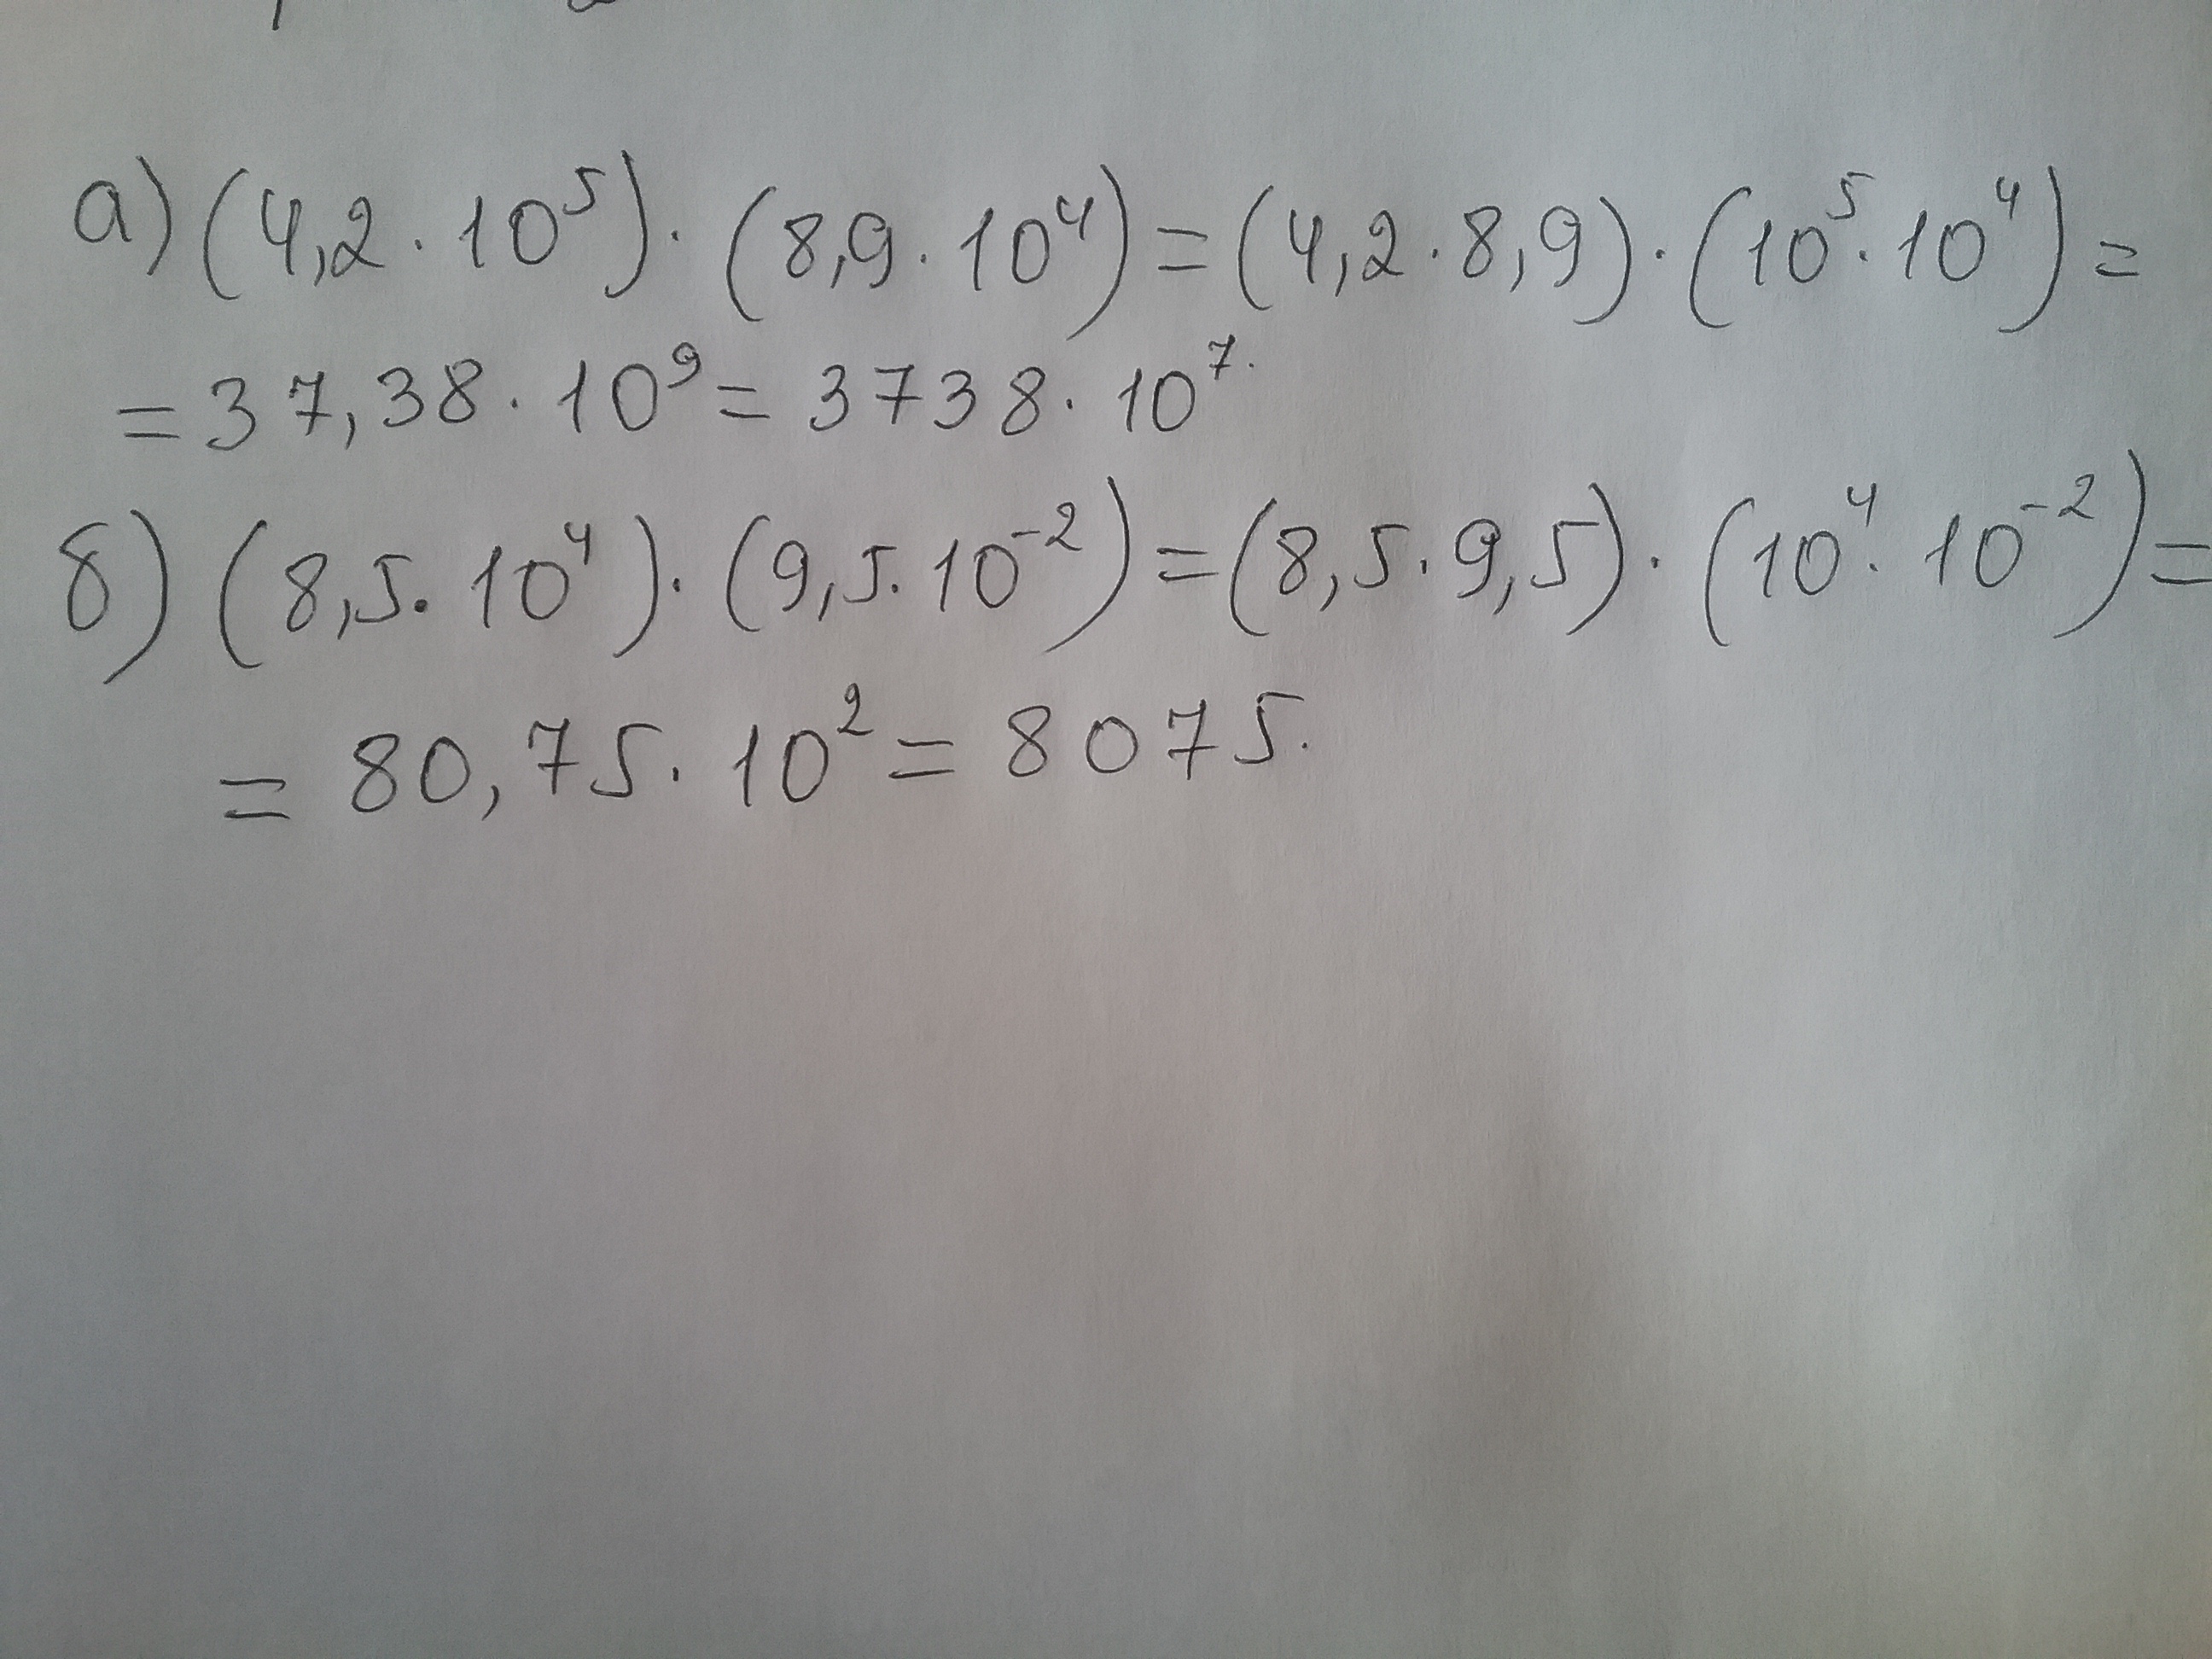 а) (4,2 · 10⁵) · (8,9 · 10⁴) = (4,2 · 8,9) · (10⁵ · 10⁴) =
= 37,38 · 10⁹ = 3738 · 10⁷.
б) (8,5 · 10⁴) · (9,5 · 10⁻²) = (8,5 · 9,5) · (10⁴ · 10⁻²) =
= 80,75 · 10² = 8075.